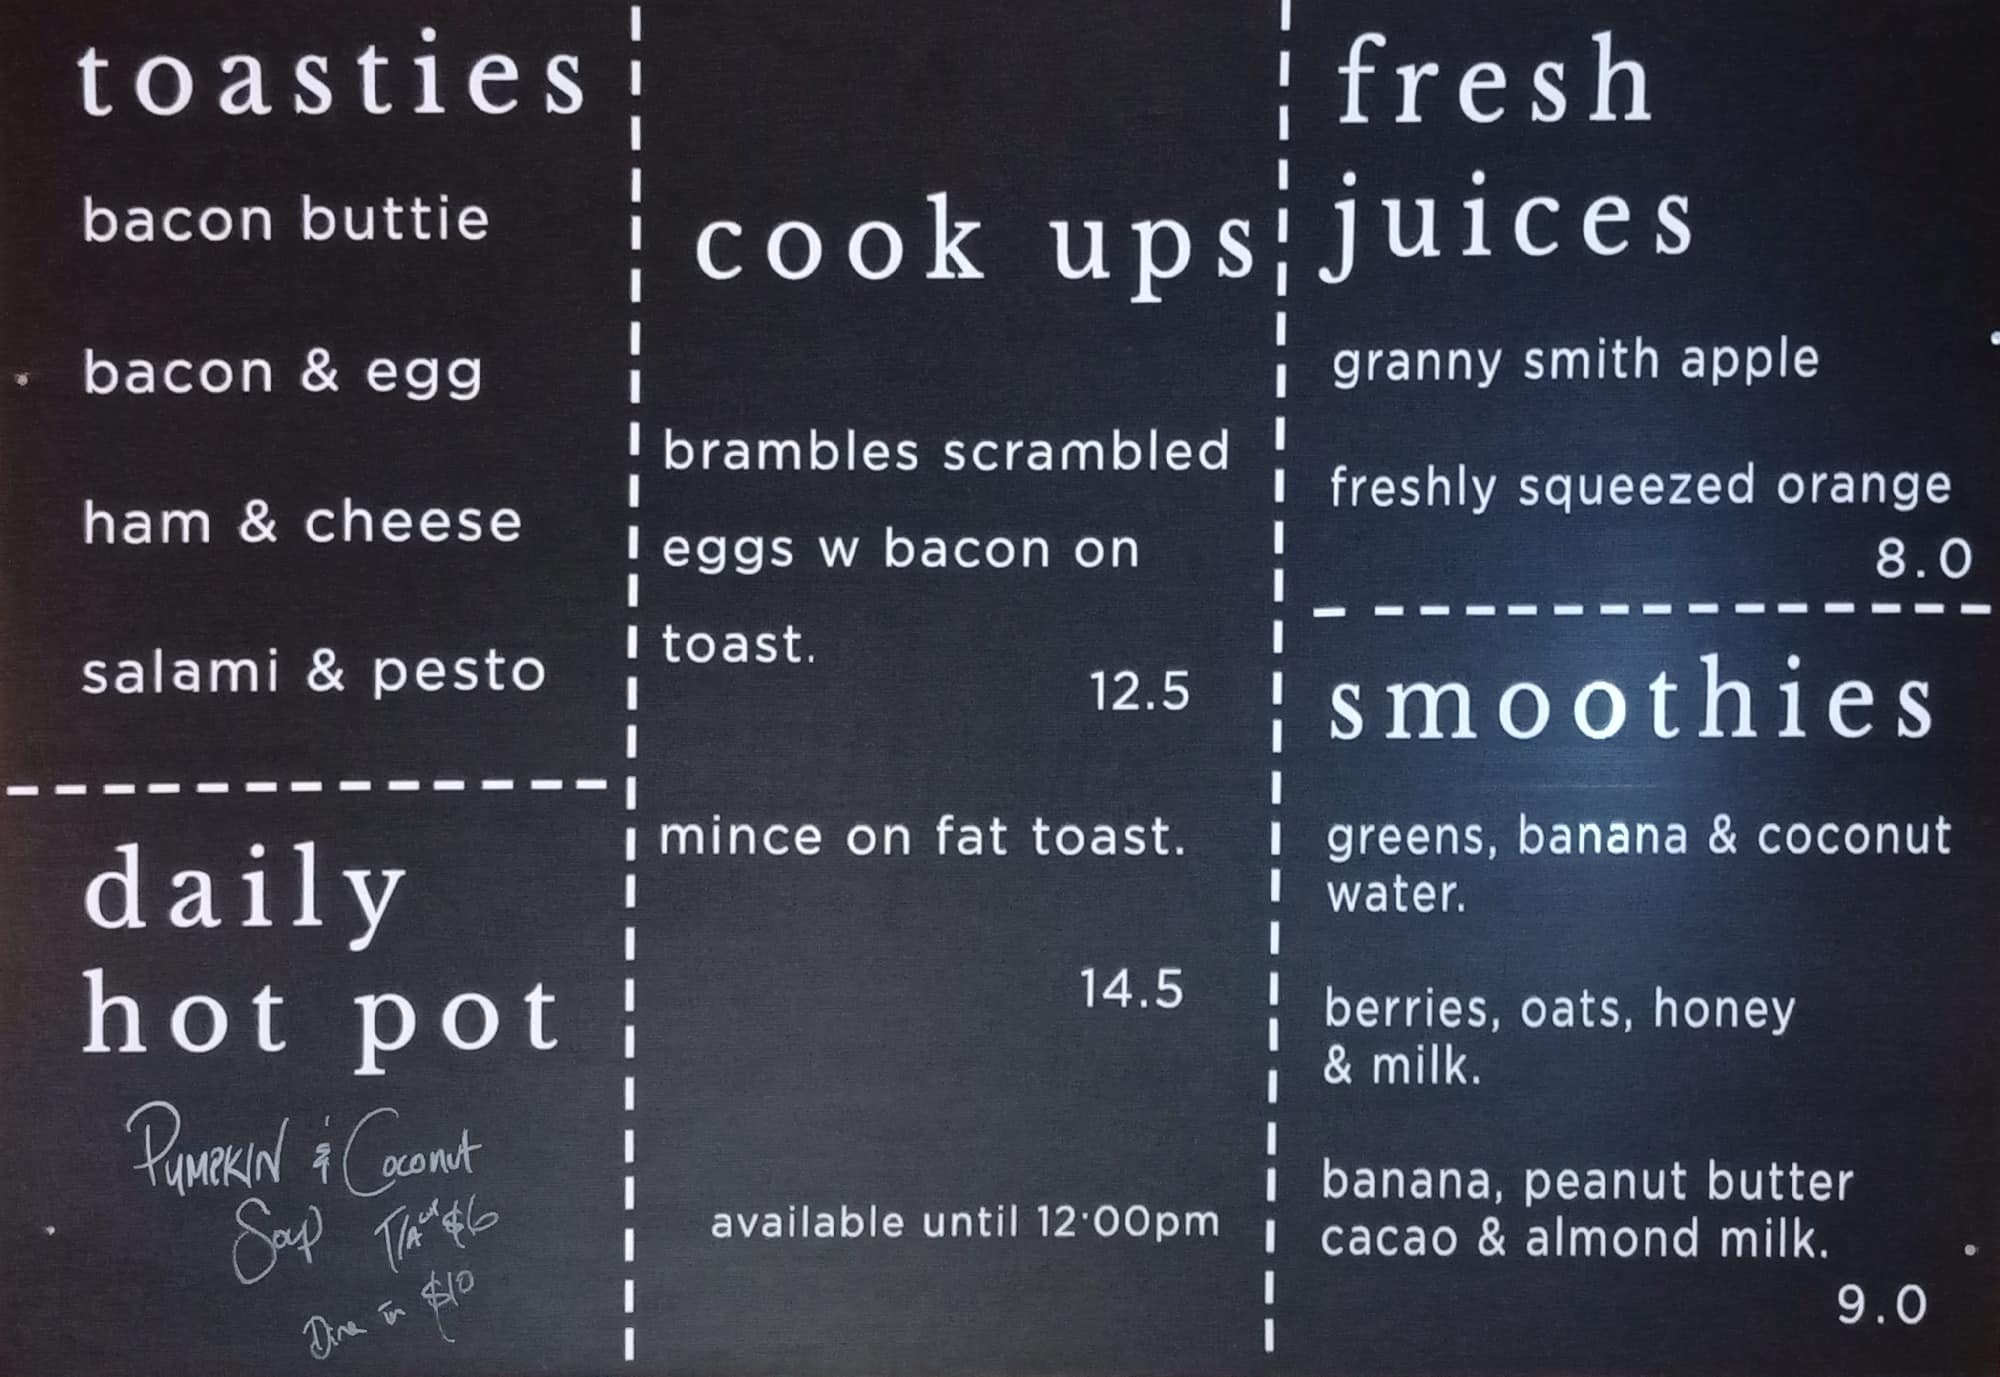 toasties
bacon buttie
bacon & egg
ham & cheese
salami & pesto
daily
hot pot
PUMPKIN & COCONUT
Soup T/A cup $6
Dine in $10
cook ups
brambles scrambled
eggs w bacon on
toast.
12.5
mince on fat toast.
14.5
available until 12·00pm
fresh
juices
granny smith apple
freshly squeezed orange
8.0
smoothies
greens, banana & coconut
water.
berries, oats, honey
& milk.
banana, peanut butter
cacao & almond milk.
9.0